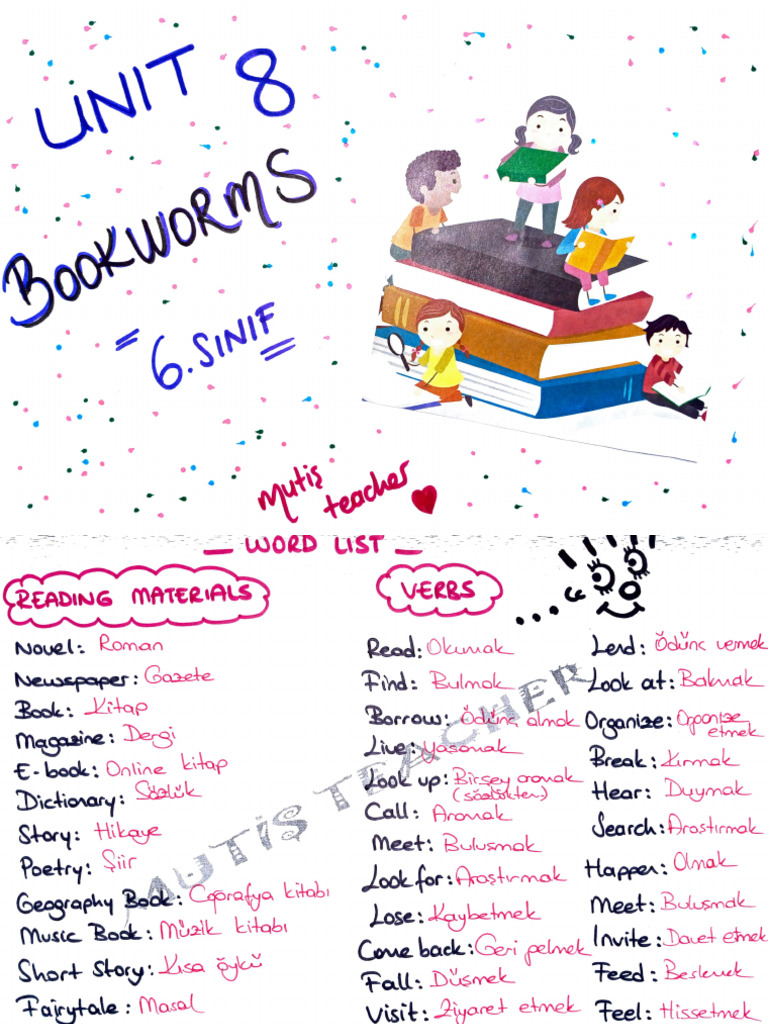 UNIT 8
BOOKWORMS
6. SINIF
Mutiş
teacher
WORD LIST
READING MATERIALS
Novel: Roman
Newspaper: Gazete
Book: Kitap
Magazine: Dergi
E-book: Online kitap
Dictionary: Sözlük
Story: Hikaye
Poetry: Şiir
Geography Book: Coğrafya kitabı
Music Book: Müzik kitabı
Short Story: Kısa öykü
Fairytale: Masal
VERBS
Read: Okumak
Find: Bulmak
Borrow: Ödünç almak
Live: Yaşamak
Look up: Birşey aramak
(sözlükten)
Call: Aramak
Meet: Buluşmak
Look for: Araştırmak
Lose: Kaybetmek
Come back: Geri gelmek
Fall: Düşmek
Visit: Ziyaret etmek
Lend: Ödünç vermek
Look at: Bakmak
Organize: Organize
etmek
Break: Kırmak
Hear: Duymak
Search: Araştırmak
Happen: Olmak
Meet: Buluşmak
Invite: Davet etmek
Feed: Beslemek
Feel: Hissetmek
MUTİŞ TEACHER